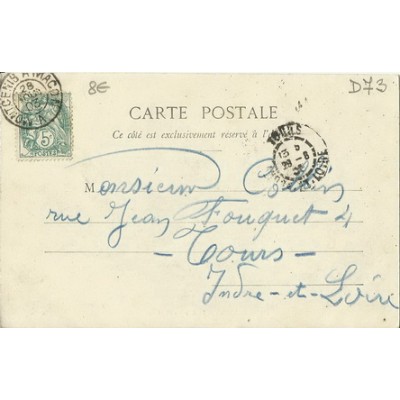 8€
D73
CARTE POSTALE
Ce côté est exclusivement réservé à l'
TOURS
Monsieur
rue Jean Fouquet 4
- Tours -
Indre-et-Loire
5